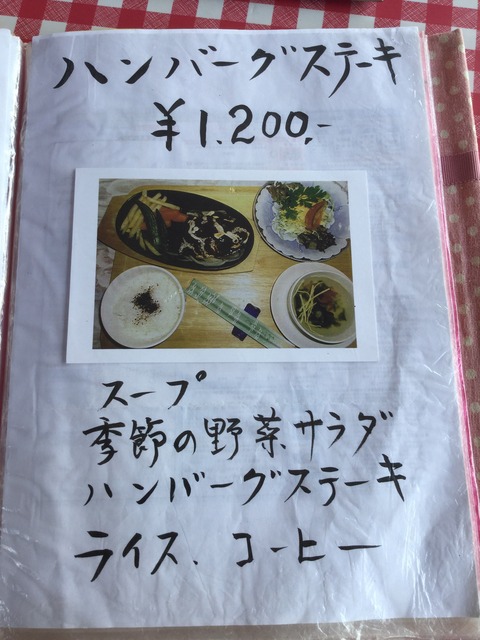 ハンバーグステーキ
¥1.200.-
スープ
季節の野菜サラダ
ハンバーグステーキ
ライス、コーヒー